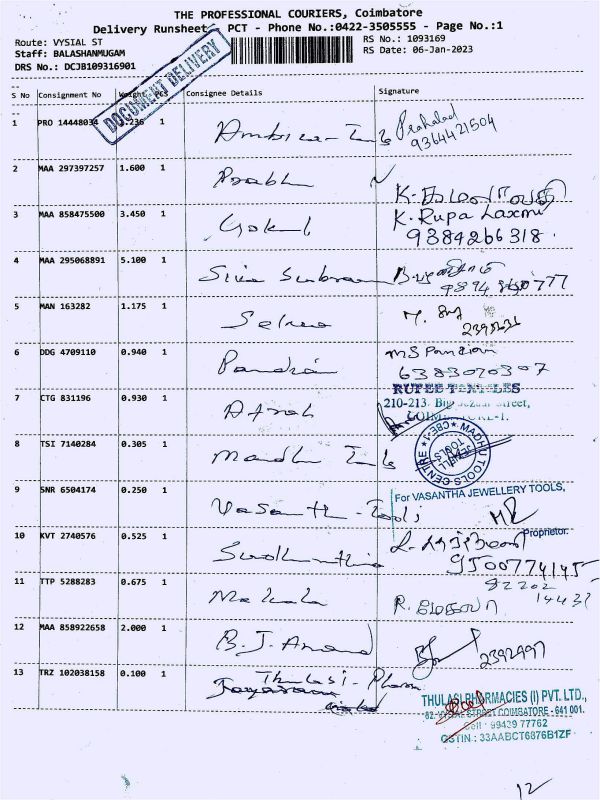 THE PROFESSIONAL COURIERS, Coimbatore
Delivery Runsheet PCT - Phone No.:0422-3505555 - Page No.:1
Route: VYSIAL ST
RS No.: 1093169
Staff: BALASHANMUGAM
RS Date: 06-Jan-2023
DRS No.: DCJB109316901
DOCUMENT DELIVERY
S No Consignment No Weight PCS Consignee Details Signature
1 PRO 14448034 .236 1 Ambica - Tools Prahalad
9364421504
2 MAA 297397257 1.600 1 Prabhu
3 MAA 858475500 3.450 1 Gokul K. Rupa Laxmi
9384266318.
4 MAA 295068891 5.100 1 Siva
5 MAN 163282 1.175 1 Selva
6 DDG 4709110 0.940 1 Pandian MS Pandian
6383070307
7 CTG 831196 0.930 1
RUPEE TEXTILES
210-213. Big Bazaar Street,
COIMBATORE-1.
8 TSI 7140284 0.305 1 Madhu Tools
MADHU TOOLS CENTRE CBE-1
JEWELL TOOLS
9 SNR 6504174 0.250 1 Vasanth - Tools
For VASANTHA JEWELLERY TOOLS,
Proprietor.
10 KVT 2740576 0.525 1
9500774145
11 TTP 5288283 0.675 1 Mekala R. மேகலா
92202
14437
12 MAA 858922658 2.000 1 B.J. Anand 2392997
13 TRZ 102038158 0.100 1 Thulasi - Pharm
Jayaraam
THULASI PHARMACIES (I) PVT. LTD.,
62, VYSIAL STREET COIMBATORE - 641 001.
Cell : 99439 77762
GSTIN : 33AABCT6876B1ZF
12